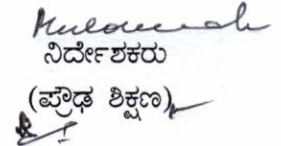 ನಿರ್ದೇಶಕರು
(ಪ್ರೌಢ ಶಿಕ್ಷಣ)